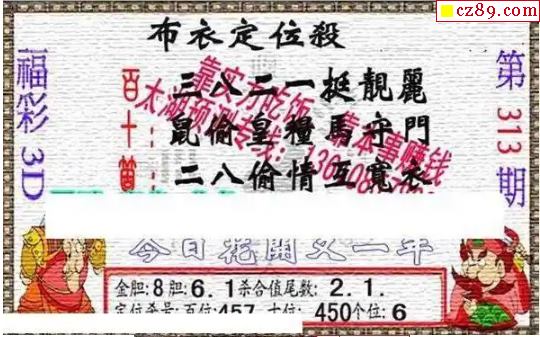 cz89.com
布衣定位殺
福彩3D
第313期
百: 三八二一挺靚麗
十: 鼠偷皇糧馬守門
個: 二八偷情互寬衣
靠实力吃饭 靠本事赚钱
太湖预测专线:
今日花開又一年
金胆:8胆:6.1杀合值尾数:2.1.
定位杀号:百位457 十位:450个位:6